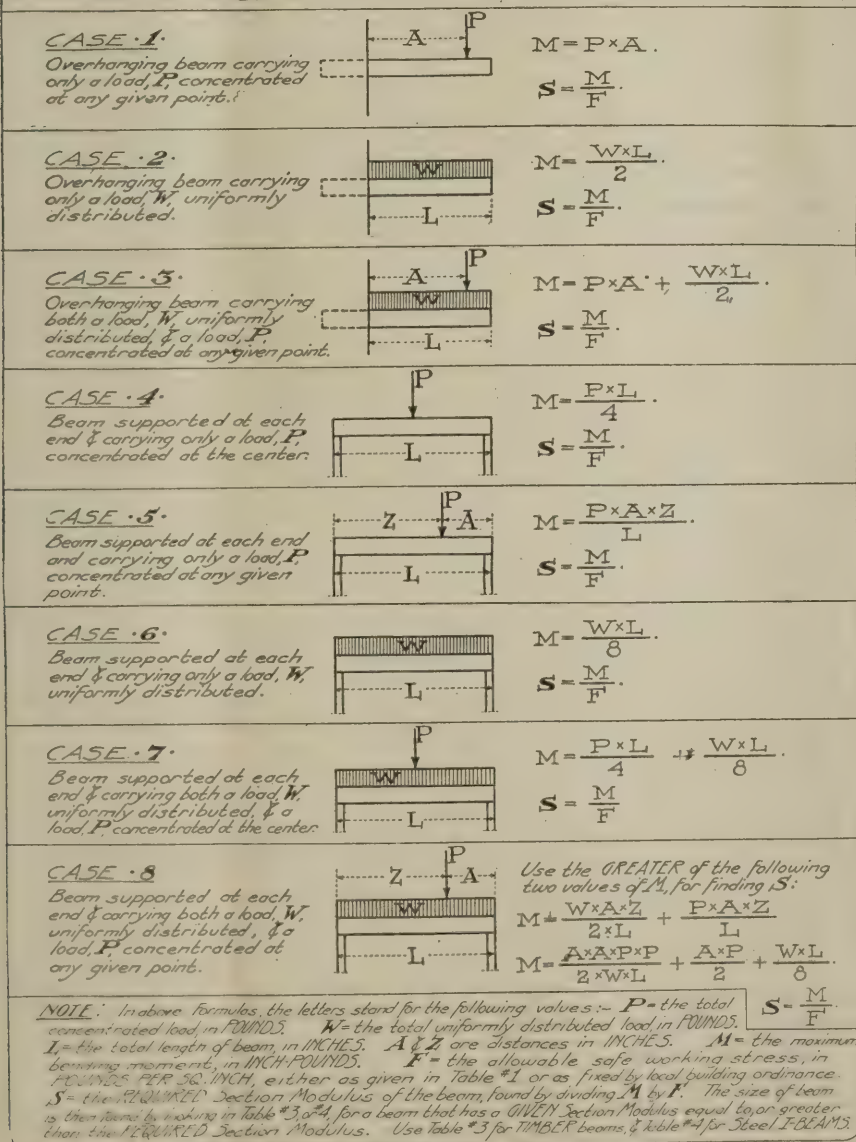 CASE · 1 ·
Overhanging beam carrying
only a load, P, concentrated
at any given point.
P
A
M = P × A .
S = M/F .
CASE · 2 ·
Overhanging beam carrying
only a load, W, uniformly
distributed.
W
L
M = W×L/2 .
S = M/F .
CASE · 3 ·
Overhanging beam carrying
both a load, W, uniformly
distributed, & a load, P,
concentrated at any given point.
P
A
W
L
M = P×A + W×L/2 .
S = M/F .
CASE · 4 ·
Beam supported at each
end & carrying only a load, P,
concentrated at the center.
P
L
M = P×L/4 .
S = M/F .
CASE · 5 ·
Beam supported at each end
and carrying only a load, P,
concentrated at any given
point.
P
Z A
L
M = P×A×Z/L .
S = M/F .
CASE · 6
Beam supported at each
end & carrying only a load, W,
uniformly distributed.
W
L
M = W×L/8 .
S = M/F .
CASE · 7 ·
Beam supported at each
end & carrying both a load, W,
uniformly distributed, & a
load, P concentrated at the center.
P
W
L
M = P×L/4 + W×L/8 .
S = M/F
CASE · 8
Beam supported at each
end & carrying both a load, W,
uniformly distributed, & a
load, P, concentrated at
any given point.
P
Z A
W
L
Use the GREATER of the following
two values of M, for finding S:
M = W×A×Z/2×L + P×A×Z/L
M = A×A×P×P/2×W×L + A×P/2 + W×L/8 .
S = M/F
NOTE: In above Formulas, the letters stand for the following values :- P = the total
concentrated load, in POUNDS. W = the total uniformly distributed load, in POUNDS.
L = the total length of beam, in INCHES. A & Z are distances in INCHES. M = the maximum
bending moment, in INCH-POUNDS. F = the allowable safe working stress, in
POUNDS PER SQ. INCH, either as given in Table #1 or as fixed by local building ordinance.
S = the REQUIRED Section Modulus of the beam, found by dividing M by F. The size of beam
is then found by looking in Table #3, or #4, for a beam that has a GIVEN Section Modulus equal to, or greater
than the REQUIRED Section Modulus. Use Table #3 for TIMBER beams, & Table #4 for Steel I-BEAMS.